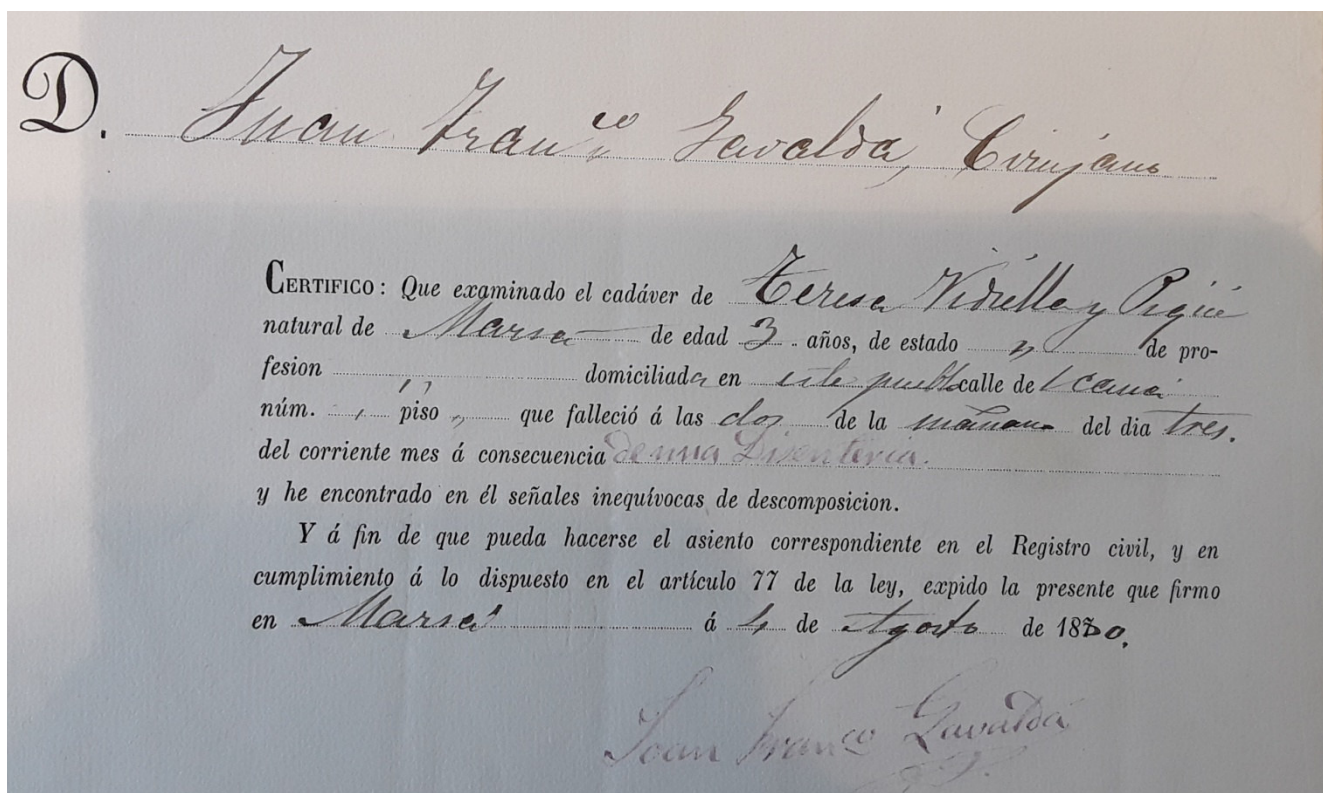 D. Juan Fran.co Gavaldá, Cirujano
CERTIFICO: Que examinado el cadáver de Teresa Vidiella y Piqué
natural de Marsá de edad 3 años, de estado " de pro-
fesion domiciliada en este pueblo calle de
núm. " piso " que falleció á las dos de la mañana del dia tres.
del corriente mes á consecuencia de una Disenteria.
y he encontrado en él señales inequívocas de descomposicion.
Y á fin de que pueda hacerse el asiento correspondiente en el Registro civil, y en
cumplimiento á lo dispuesto en el artículo 77 de la ley, expido la presente que firmo
en Marsá á 4 de Agosto de 1880.
Joan Franco Gavaldá